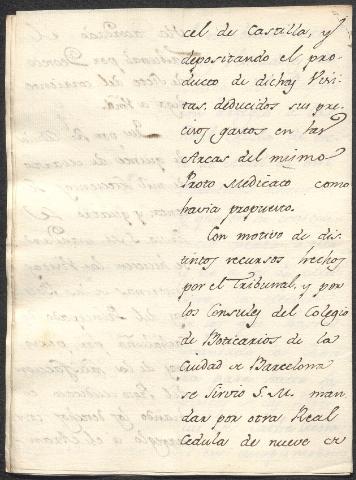 cel de Castilla, y
depositando el pro-
ducto de dichas Visi-
tas, deducidos sus pre-
cisos gastos en las
Arcas del mismo
Proto Medicato como
havia propuesto.
Con motivo de dis-
tintos recursos hechos
por el Tribunal, y por
los Consules del Colegio
de Boticarios de la
Ciudad de Barcelona
se sirvio S. M. man-
dar por otra Real
Cedula de nueve de